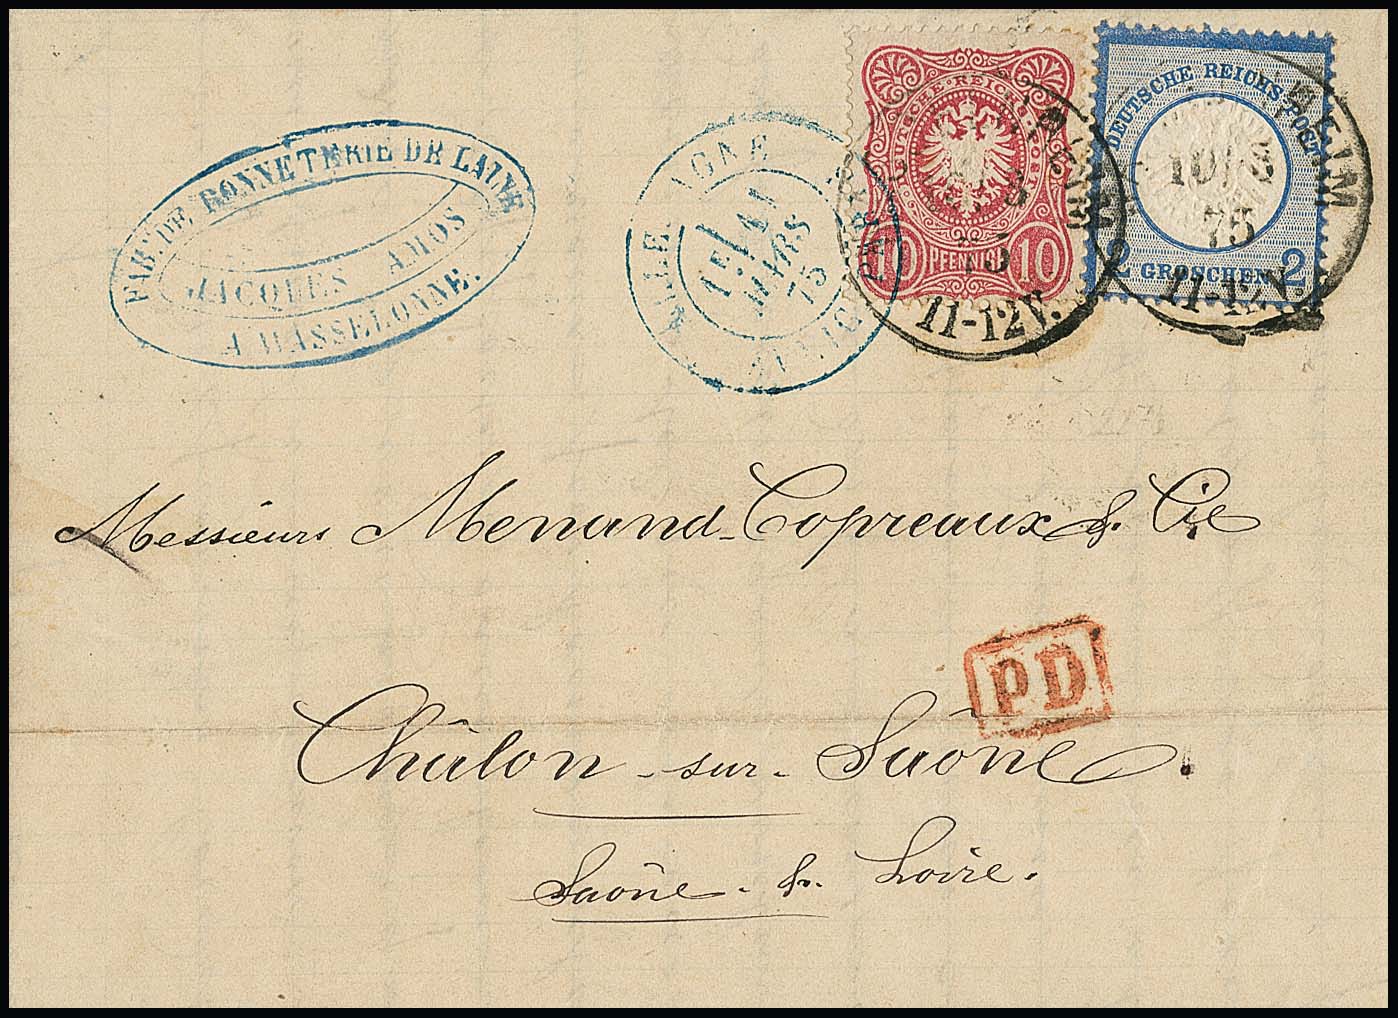 FAB. DE BONNETERIE DE LAINE
JACQUES AMOS
A WASSELONNE.
1E/ 11
MARS
75
DEUTSCHE REICHS-POST
10 PFENNIGE 10
11-12V.
DEUTSCHE REICHS-POST
HEIM
10/3
75
2 GROSCHEN 2
11-12V.
Messieurs Menand-Copreaux & Cie
PD
Châlon-sur-Saône.
Saône-&-Loire.